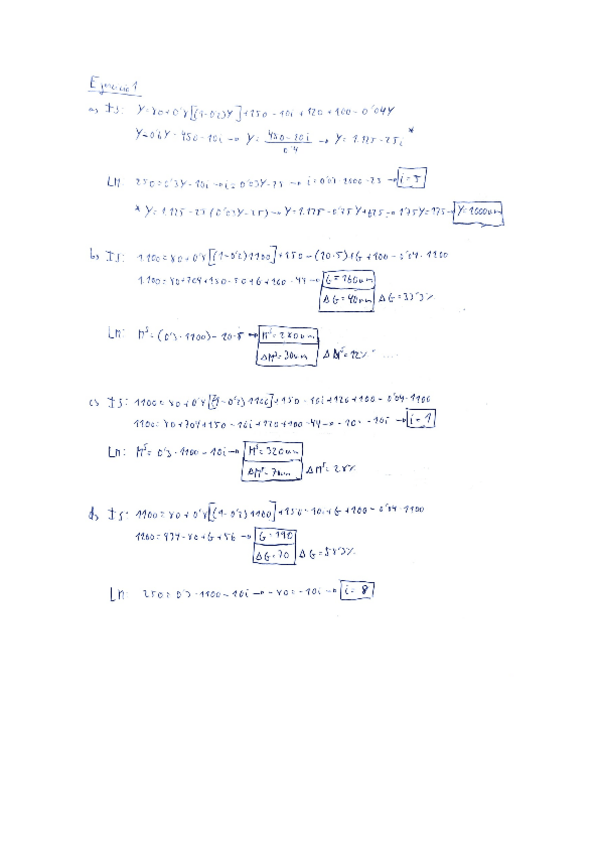 Ejercicio 1
a) IS: Y=80+0'8[(1-0'2)Y]+150-10i+120+100-0'04Y
Y-0'6Y=450-10i → Y= 450-10i / 0'4 → Y=1.125-25i *
LM: 250=0'3Y-10i → i=0'03Y-25 → i=0'03·1000-25 → i=5
* Y=1.125-25(0'03Y-25) → Y=1.125-0'75Y+625 → 1'75Y=1750 → Y=1000um
b) IS: 1.100=80+0'8[(1-0'2)1100]+150-(10·5)+G+100-0'04·1100
1.100=80+704+150-50+G+100-44 → G=160um
ΔG=40um ΔG=33'3%
LM: M^S=(0'3·1100)-10·5 → M^S=280um
ΔM^S=30um ΔM^S=12%
c) IS: 1100=80+0'8[(1-0'2)1100]+150-10i+120+100-0'04·1100
1100=80+704+150-10i+120+100-44 → -10=-10i → i=1
LM: M^S=0'3·1100-10i → M^S=320um
ΔM^S=70um ΔM^S=28%
d) IS: 1100=80+0'8[(1-0'2)1100]+150-10i+G+100-0'04·1100
1100=934-80+G+56 → G=190
ΔG=70 ΔG=58'3%
LM: 250=0'3·1100-10i → -80=-10i → i=8